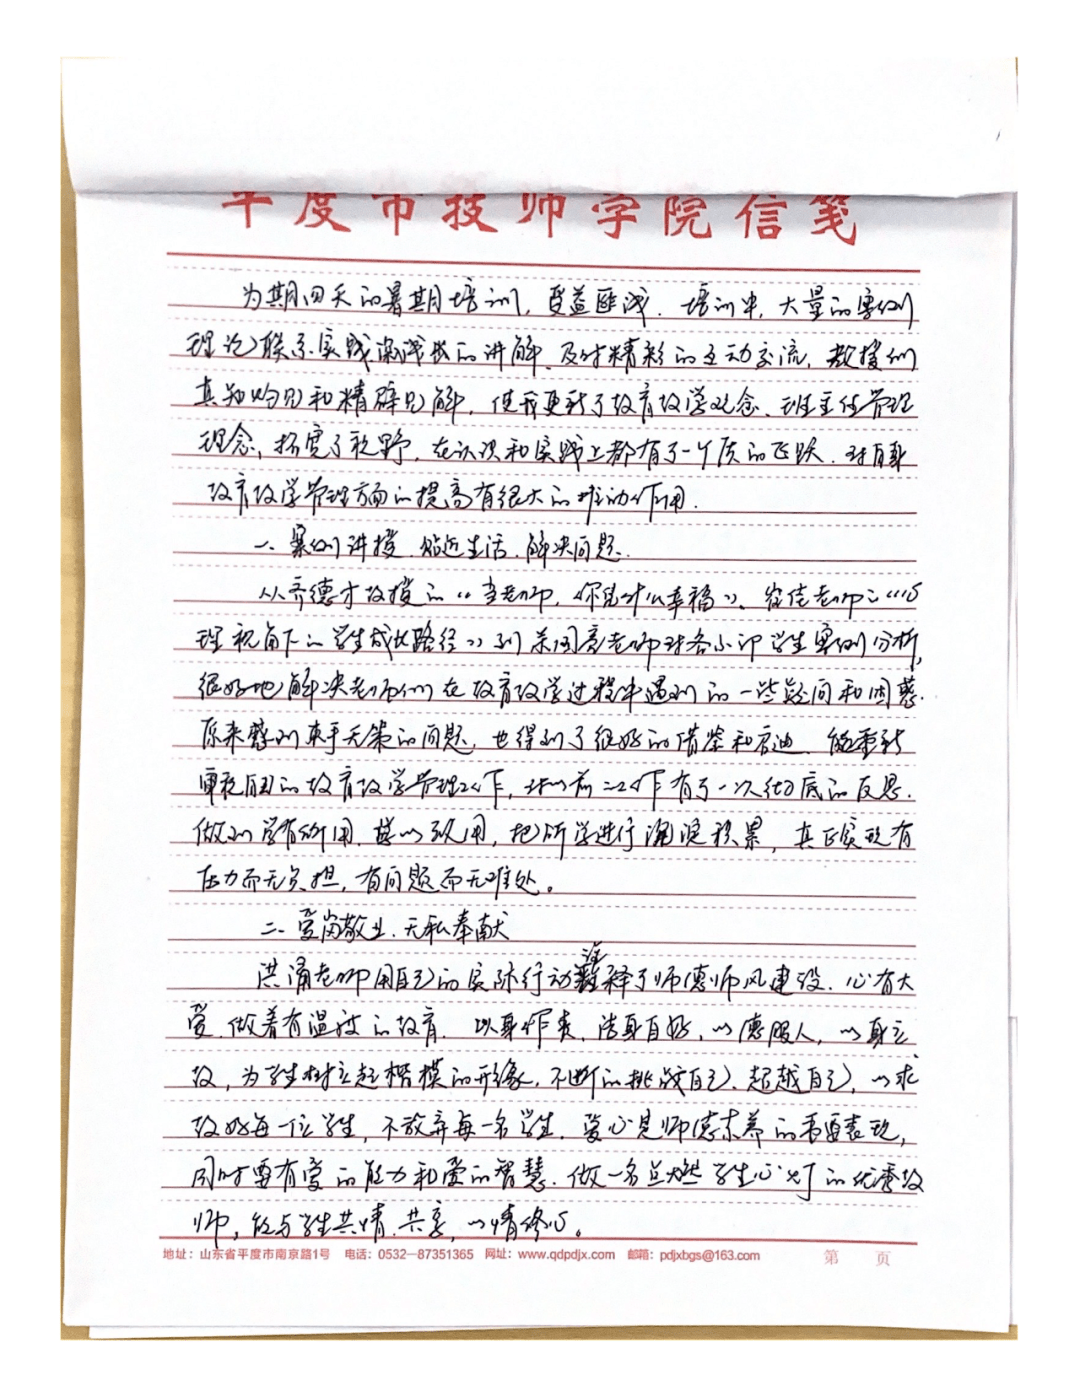 平度市技师学院信笺
为期四天的暑期培训，受益匪浅．培训中，大量的案例
理论联系实践深浅战的讲解、及时精彩的互动交流，教授们
真知灼见和精辟见解，使我更新了教育教学观念、班主任管理
理念，拓宽了视野．在认识和实践上都有了一个质的飞跃．对自身
教育教学管理方面的提高有很大的推动作用．
一、案例讲授．贴近生活．解决问题．
从齐德才教授的《当老师，你凭什么幸福》、佳老师的《心
理视角下的学生成长路径》到国亮老师对各小组学生案例分析，
很好地解决老师们在教育教学过程中遇到的一些疑问和困惑．
原来感到束手无策的问题，也得到了很好的借鉴和启迪．能重新
审视自己的教育教学管理工作，对以前的工作有了一次彻底的反思．
做到学有所用．学以致用，把所学进行沉淀积累，真正实现有
压力而无负担，有问题而无难处。
二、爱岗敬业．无私奉献
洪涌老师用自己的实际行动诠释了师德师风建设．心有大
爱．做着有温度的教育．以身作责．洁身自好，以德服人，以身立
教，为学生树立起楷模的形像．不断的挑战自己．超越自己，以求
教好每一位学生，不放弃每一名学生．爱心是师德素养的重要表现，
同时要有爱的能力和爱的智慧．做一名点燃学生心灯的优秀教
师，能与学生共情．共享，以情修心。
地址：山东省平度市南京路1号 电话：0532—87351365 网址：www.qdpdjx.com 邮箱：pdjxbgs@163.com 第 页